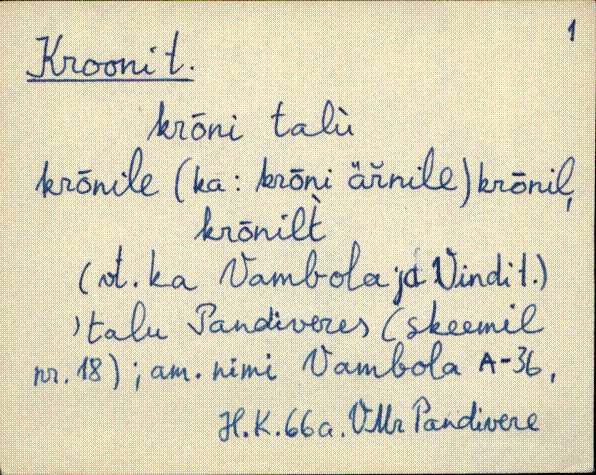 1
Krooni t.
krōni talù
krōnile (ka: krōni äřnile) krōnil,
krōnilt̀
(vt. ka Vambola ja Vindi t.)
'talu Pandiveres (skeemil
nr. 18); am. nimi Vambola A-36,
H.K. 66a. VMr Pandivere